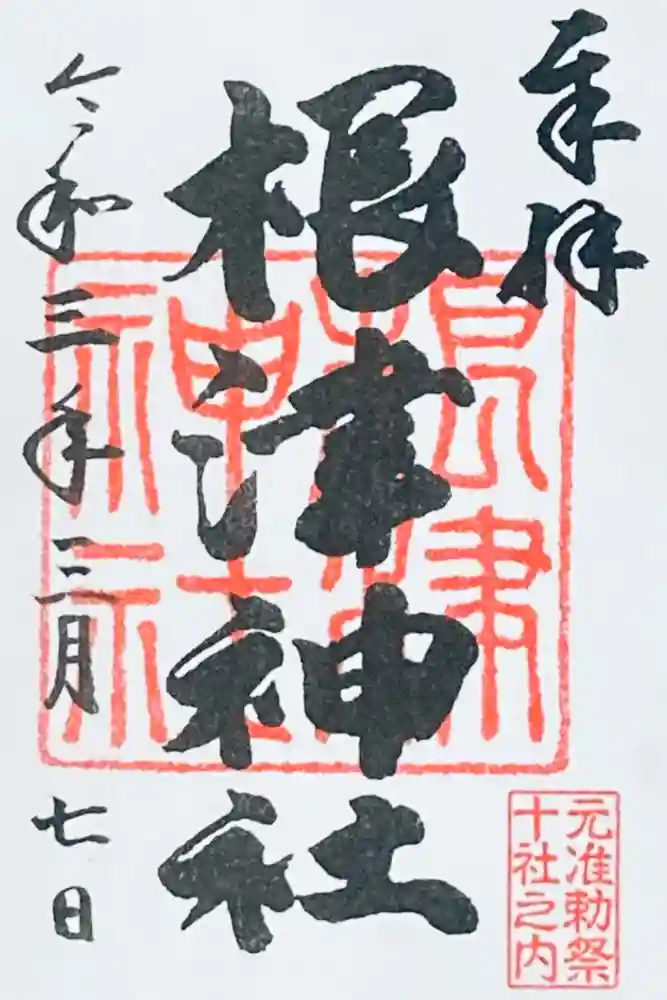 奉拝
根津神社
根津神社
令和三年三月七日
元准勅祭
十社之内